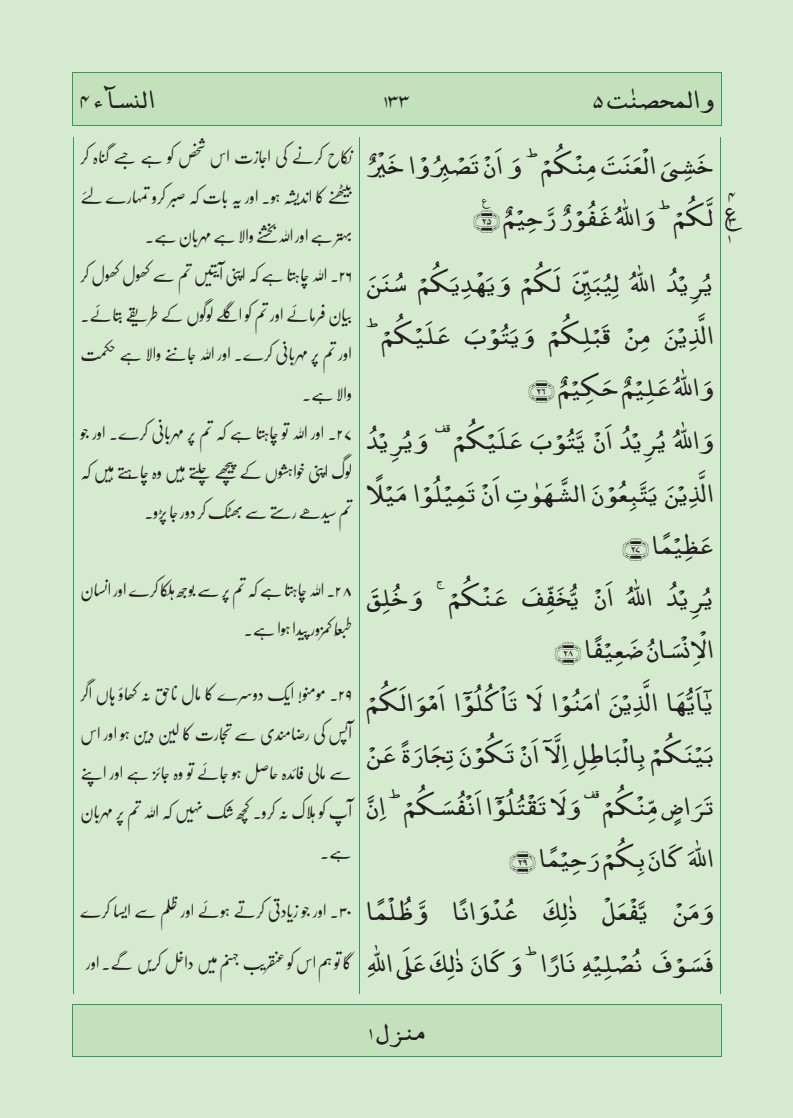 والمحصنٰت ۵
۱۳۳
النسآء ۴
خَشِیَ الْعَنَتَ مِنْكُمْ ؕ وَ اَنْ تَصْبِرُوْا خَیْرٌ
لَّكُمْ ؕ وَاللّٰهُ غَفُوْرٌ رَّحِیْمٌ ﴿۲۵﴾
یُرِیْدُ اللّٰهُ لِیُبَیِّنَ لَكُمْ وَیَهْدِیَكُمْ سُنَنَ
الَّذِیْنَ مِنْ قَبْلِكُمْ وَیَتُوْبَ عَلَیْكُمْ ؕ
وَاللّٰهُ عَلِیْمٌ حَكِیْمٌ ﴿۲۶﴾
وَاللّٰهُ یُرِیْدُ اَنْ یَّتُوْبَ عَلَیْكُمْ ۫ وَیُرِیْدُ
الَّذِیْنَ یَتَّبِعُوْنَ الشَّهَوٰتِ اَنْ تَمِیْلُوْا مَیْلًا
عَظِیْمًا ﴿۲۷﴾
یُرِیْدُ اللّٰهُ اَنْ یُّخَفِّفَ عَنْكُمْ ۚ وَخُلِقَ
الْاِنْسَانُ ضَعِیْفًا ﴿۲۸﴾
یٰۤاَیُّهَا الَّذِیْنَ اٰمَنُوْا لَا تَاْكُلُوْۤا اَمْوَالَكُمْ
بَیْنَكُمْ بِالْبَاطِلِ اِلَّاۤ اَنْ تَكُوْنَ تِجَارَةً عَنْ
تَرَاضٍ مِّنْكُمْ ۫ وَلَا تَقْتُلُوْۤا اَنْفُسَكُمْ ؕ اِنَّ
اللّٰهَ كَانَ بِكُمْ رَحِیْمًا ﴿۲۹﴾
وَمَنْ یَّفْعَلْ ذٰلِكَ عُدْوَانًا وَّظُلْمًا
فَسَوْفَ نُصْلِیْهِ نَارًا ؕ وَ كَانَ ذٰلِكَ عَلَی اللّٰهِ
نکاح کرنے کی اجازت اس شخص کو ہے جسے گناہ کر
بیٹھنے کا اندیشہ ہو۔ اور یہ بات کہ صبر کرو تمہارے لئے
بہتر ہے اور اللہ بخشنے والا ہے مہربان ہے۔
۲۶۔ اللہ چاہتا ہے کہ اپنی آیتیں تم سے کھول کھول کر
بیان فرمائے اور تم کو اگلے لوگوں کے طریقے بتائے۔
اور تم پر مہربانی کرے۔ اور اللہ جاننے والا ہے حکمت
والا ہے۔
۲۷۔ اور اللہ تو چاہتا ہے کہ تم پر مہربانی کرے۔ اور جو
لوگ اپنی خواہشوں کے پیچھے چلتے ہیں وہ چاہتے ہیں کہ
تم سیدھے رستے سے بھٹک کر دور جا پڑو۔
۲۸۔ اللہ چاہتا ہے کہ تم پر سے بوجھ ہلکا کرے اور انسان
طبعاً کمزور پیدا ہوا ہے۔
۲۹۔ مومنو! ایک دوسرے کا مال ناحق نہ کھاؤ ہاں اگر
آپس کی رضامندی سے تجارت کا لین دین ہو اور اس
سے مالی فائدہ حاصل ہو جائے تو وہ جائز ہے اور اپنے
آپ کو ہلاک نہ کرو۔ کچھ شک نہیں کہ اللہ تم پر مہربان
ہے۔
۳۰۔ اور جو زیادتی کرتے ہوئے اور ظلم سے ایسا کرے
گا تو ہم اس کو عنقریب جہنم میں داخل کریں گے۔ اور
منزل ۱